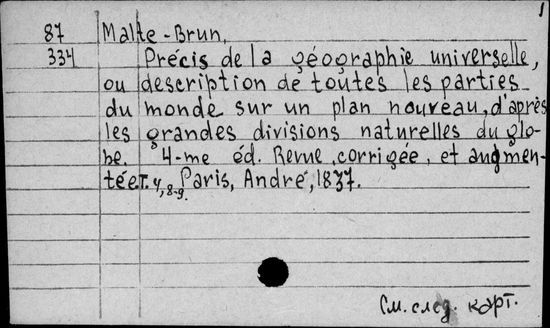 1
87 Malte-Brun,
334 Précis de la géographie universelle,
ou description de toutes les parties
du monde sur un plan nouveau, d'après
les grandes divisions naturelles du glo-
be. 4-me éd. Revue, corrigée, et augmen-
tée. T. 4, 8-9. Paris, André, 1837.
См. след. карт.